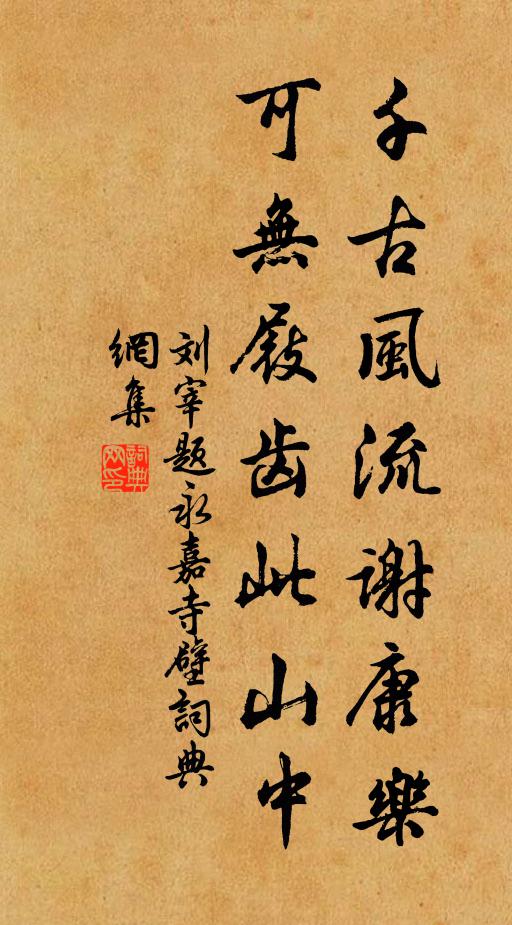 千古風流谢康樂
可無屐齿此山中
刘宰题永嘉寺壁詞典
網集
詞典
网印